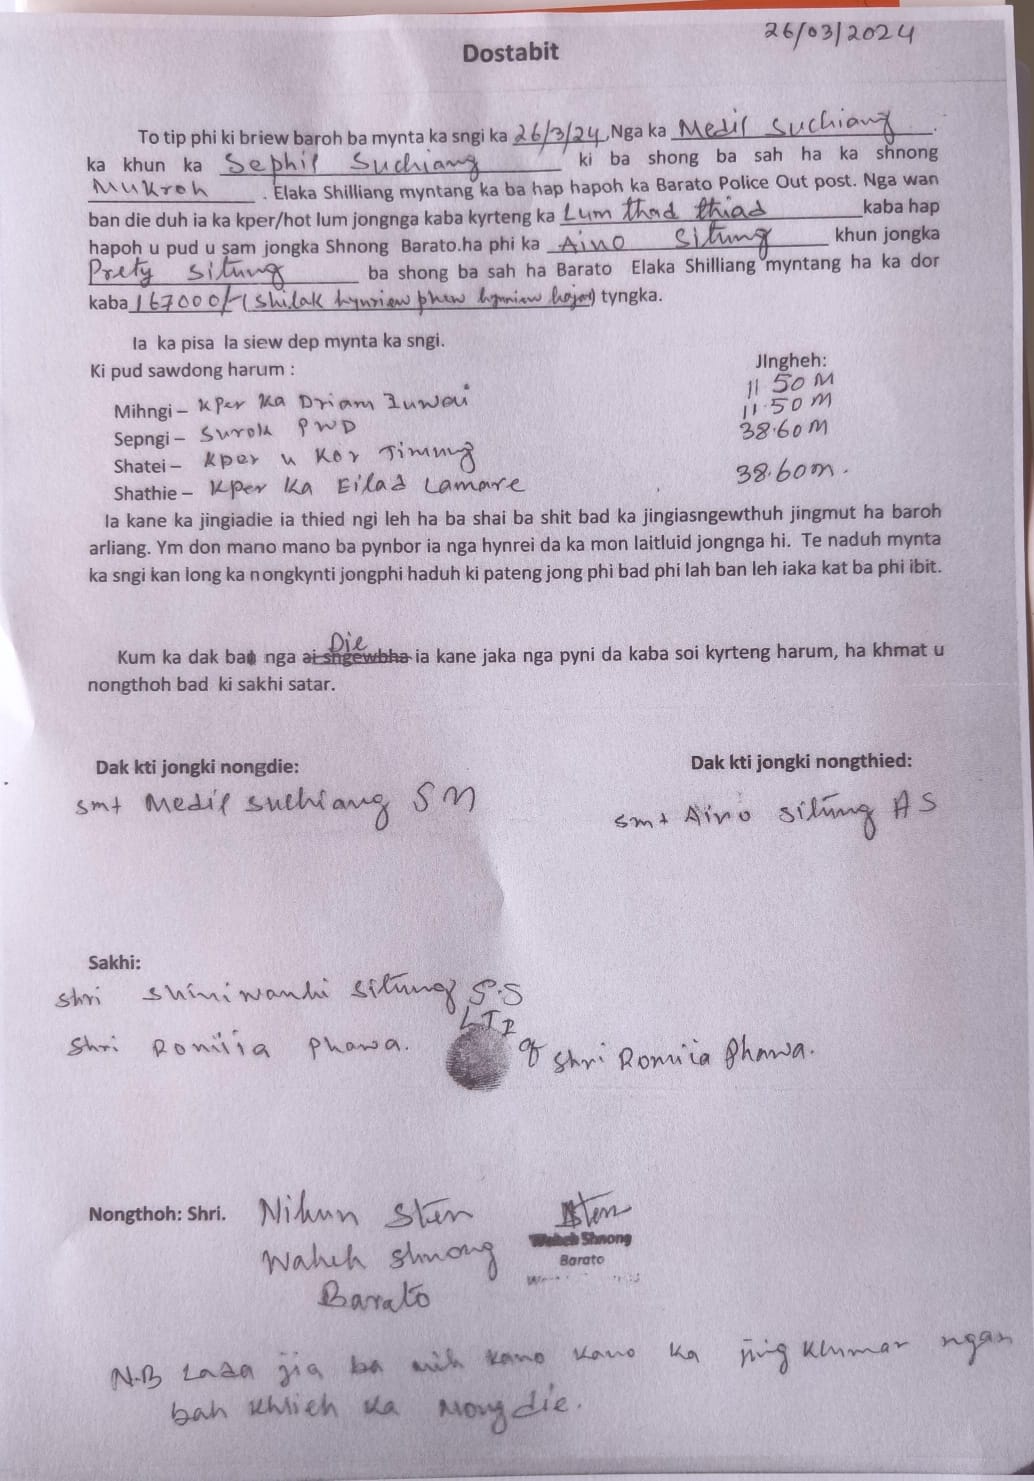 26/03/2024
Dostabit
To tip phi ki briew baroh ba mynta ka sngi ka 26/3/24, Nga ka Medil Suchiang.
ka khun ka Sephil Suchiang ki ba shong ba sah ha ka shnong
Mukroh. Elaka Shilliang myntang ka ba hap hapoh ka Barato Police Out post. Nga wan
ban die duh ia ka kper/hot lum jongnga kaba kyrteng ka Lum thad thiad kaba hap
hapoh u pud u sam jongka Shnong Barato.ha phi ka Aino Situng khun jongka
Prety Situng ba shong ba sah ha Barato Elaka Shilliang myntang ha ka dor
kaba 167000/- (Shilak hynriew phew hynniew hajar) tyngka.
Ia ka pisa la siew dep mynta ka sngi.
Ki pud sawdong harum : JIngheh:
Mihngi – Kper Ka Driam Iuwai 11 50 M
Sepngi – Surok PWD 11.50 M
Shatei – Kper u Kor Timung 38.60 M
Shathie – Kper Ka Eilad Lamare 38.60m.
Ia kane ka jingiadie ia thied ngi leh ha ba shai ba shit bad ka jingiasngewthuh jingmut ha baroh
arliang. Ym don mano mano ba pynbor ia nga hynrei da ka mon laitluid jongnga hi. Te naduh mynta
ka sngi kan long ka nongkynti jongphi haduh ki pateng jong phi bad phi lah ban leh iaka kat ba phi ibit.
Die
Kum ka dak ba nga ai shgewbha ia kane jaka nga pyni da kaba soi kyrteng harum, ha khmat u
nongthoh bad ki sakhi satar.
Dak kti jongki nongdie: Dak kti jongki nongthied:
smt Medil Suchiang SM smt Aino Situng AS
Sakhi:
Shri Shiniwanhi Situng S.S
LTI
Shri Romiia Phawa. of Shri Romiia Phawa.
Nongthoh: Shri. Nihun Sten Sten
Waheh Shnong Waheh Shnong
Barato Barato
N.B Lada jia ba mih kano kano ka jingkhumar ngan
bah khlieh ka Nongdie.